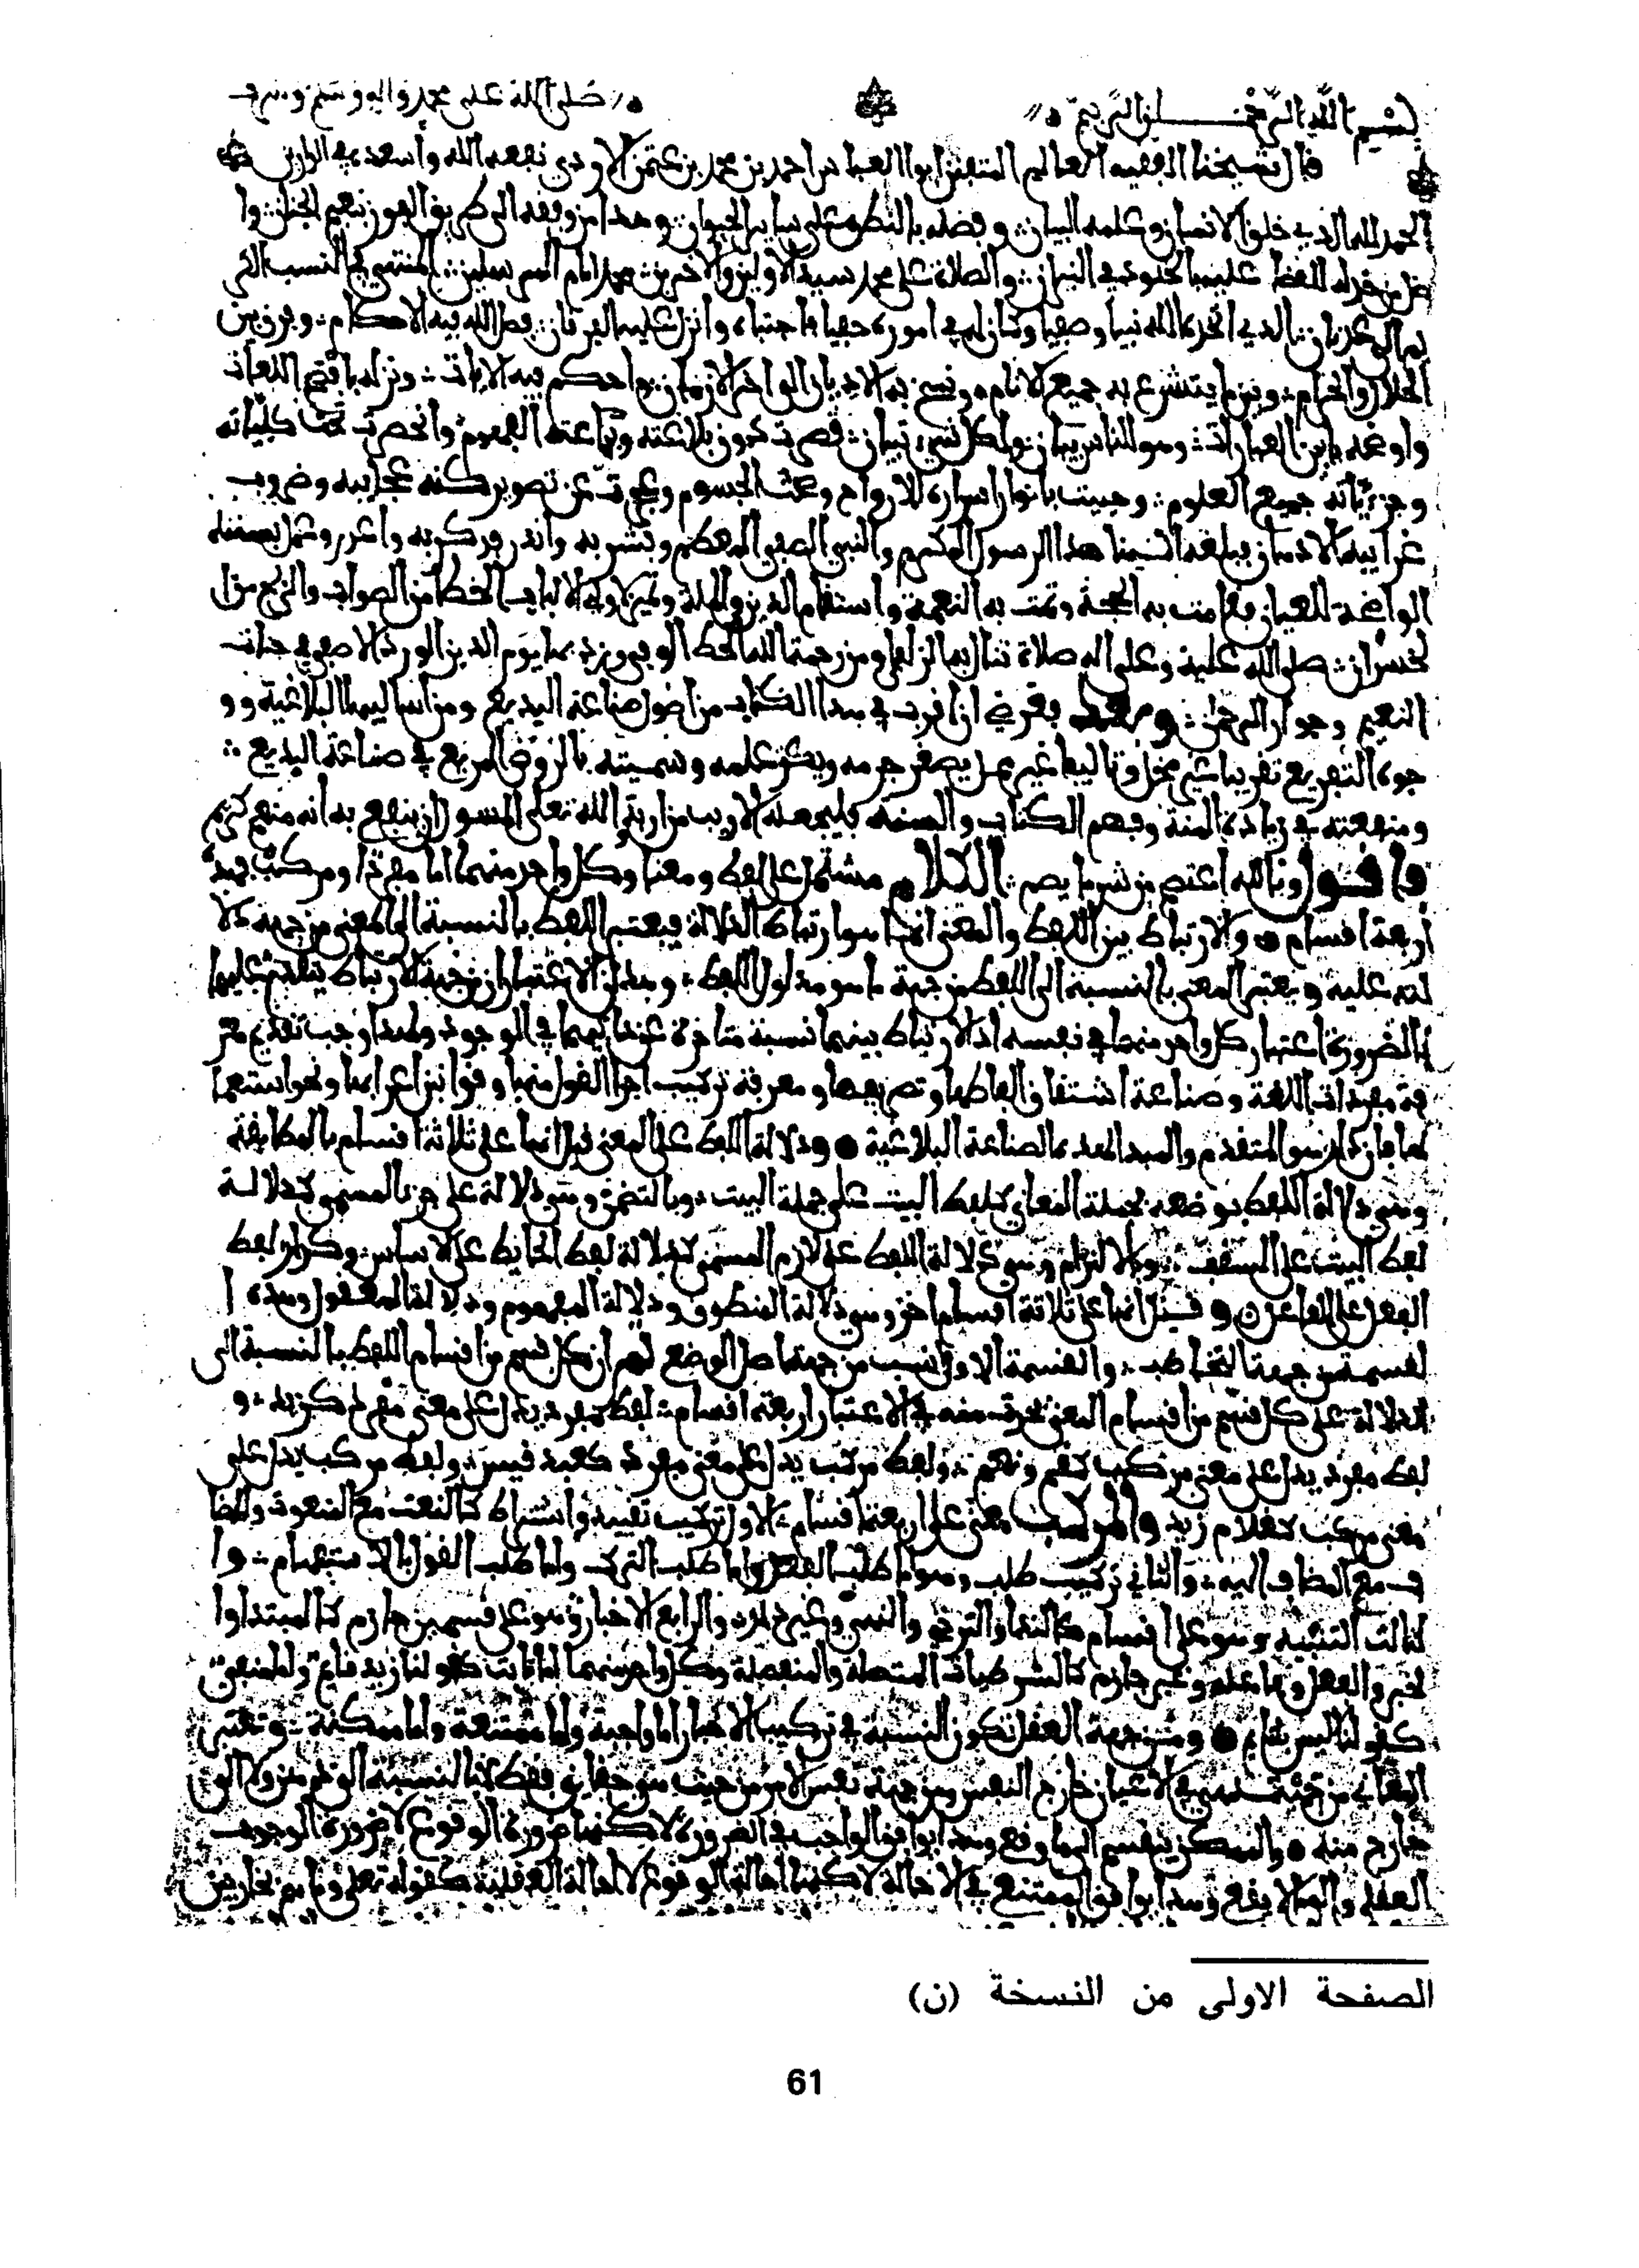 بسم الله الرحمن الرحيم صلى الله على محمد وءاله وسلم
قال شيخنا الفقيه العالم المتفنن ابوا العباس احمد بن محمد بن عثمن الازدي نفعه الله وأسعده في الدارين
الحمد لله الذي خلق الانسان وعلمه البيان وفضله بالنطق على ساير الحيوان وهدا من وفقه الى طريق الفوز بنعيم الجنان وا
والصلاة على محمد سيد الاولين والاخرين امام المرسلين المنتمي في النسب الى
الذي اتخذه الله نبيا وصفيا وكان له في اموره حفيا واجتباه وانزل عليه الفرقان فصل الله فيه الاحكام وفرق بين
الحلال والحرام وبين ما يتشرع به جميع الانام ونسخ به الاديان الى اخر الازمان واحكم فيه الايات ونزله بافصح اللغات
واوضحه بابين العبارات وهو للناس بيان ولكل شيء تبيان قصرت دون بلاغته وبراعته الفهوم وانحصرت تحت كلياته
وجزئياته جميع العلوم وحييت بانوار اسراره الارواح وعجزت عن تصوير كنه عجائبه وضروب
غرائبه الاذهان فبلغه الينا هذا الرسول الكريم والنبي الصفي المعظم وبشر به وانذر
الواضحة للعيان فقامت به الحجة وتمت به النعمة واستقام الدين والملة وتميز لاولي الالباب الخطا من الصواب والربح من ا
لخسران صلى الله عليه وعلى اله صلاة تنال بها الزلفى ومن رحمة الله الحظ الاوفى ونرد بها يوم الدين المورد الاصفى في جنات
النعيم وجوار الرحمن وبعد فغرضي ان اقرب في هذا الكتاب من اصول صناعة البديع ومن اساليبها البلاغية وو
جوه التفريع تقريبا غير مخل وتاليفا غير ممل يصغر جرمه ويكثر علمه وسميته بالروض المريع في صناعة البديع
ومنفعته في زيادة المنة وفهم الكتاب والسنة فليجعله الاديب من اربه والله تعلى المسول ان ينفع به انه منعم كريم
فاقول وبالله اعتصم من شر ما يصم الكلام مشتمل على لفظ ومعنا وكل واحد منهما اما مفرد او مركب فهذه
اربعة اقسام والارتباط بين اللفظ والمعنى انما هو ارتباط الدلالة فيعتبر اللفظ بالنسبة الى المعنى من جهة دلا
لته عليه ويعتبر المعنى بالنسبة الى اللفظ من جهة ما هو مدلول اللفظ وهذان الاعتباران من جهة الارتباط يتقدم عليهما
بالضرورة اعتبار كل واحد منهما في نفسه اذ الارتباط بينهما نسبة متاخرة عنهما في الوجود ولهذا وجب تقديم معر
فة مفردات اللغة وصناعة اشتقاق الفاظها وتصريفها ومعرفة تركيب اجزا القول منها وقوانين اعرابها
ودلالة اللفظ على المعنى قيل انها على ثلاثة اقسام بالمطابقة
وهي دلالة اللفظ بوضعه لجملة المعاني كلفظ البيت على جملة البيت وبالتضمن وهي دلالة على جزء المسمى كدلالة
لفظ البيت على السقف وبالالتزام وهي دلالة اللفظ على لازم المسمى كدلالة لفظ الحايط على الاساس وكدلالة لفظ
الفعل على الفاعل وقيل انها على ثلاثة اقسام اخر وهي دلالة المنطوق ودلالة المفهوم ودلالة المعقول وهذه ا
لقسمة من جهة التخاطب والقسمة الاولى انسب من جهة اصل الوضع ثم ان كل قسم من اقسام اللفظ بالنسبة الى
الدلالة على كل قسم من اقسام المعنى تحدث منه في الاعتبار اربعة اقسام لفظ مفرد يدل على معنى مفرد كزيد و
لفظ مفرد يدل على معنى مركب كنعم ولفظ مركب يدل على معنى مفرد كعبد قيس ولفظ مركب يدل على
معنى مركب كغلام زيد والمركب معنى على اربعة اقسام الاول تركيب تقييد واشتراك كالنعت مع المنعوت والمضا
ف مع المضاف اليه والثاني تركيب طلب وهو اما طلب الفعل واما طلب الترك واما طلب القول بالاستفهام وا
لثالث التنبيه وهو على اقسام كالندا والترجي والتمني وغير ذلك والرابع الاخبار وهو على قسمين جازم كالمبتدا وا
لخبر والفعل وفاعله وغير جازم كالشرطيات المتصلة والمنفصلة وكل واحد منهما اما ثابت كقولنا زيد قايم واما منفي
كقولنا ليس بقايم ومن جهة العقل تكون النسبة في تركيب الاخبار اما واجبة واما ممتنعة واما ممكنة وتعتبر
خارج منه والممكن ينقسم الى ما وقع وهذا يوافق الواجب في الضرورة لاكنها ضرورة الوقوع لا ضرورة الوجوب
العقلي والى ما لا يقع وهذا يوافق الممتنع في الاحالة لاكنها احالة الوقوع لا احالة العقلية كقوله تعلى وما هم بخارجين
الصفحة الاولى من النسخة (ن)
61